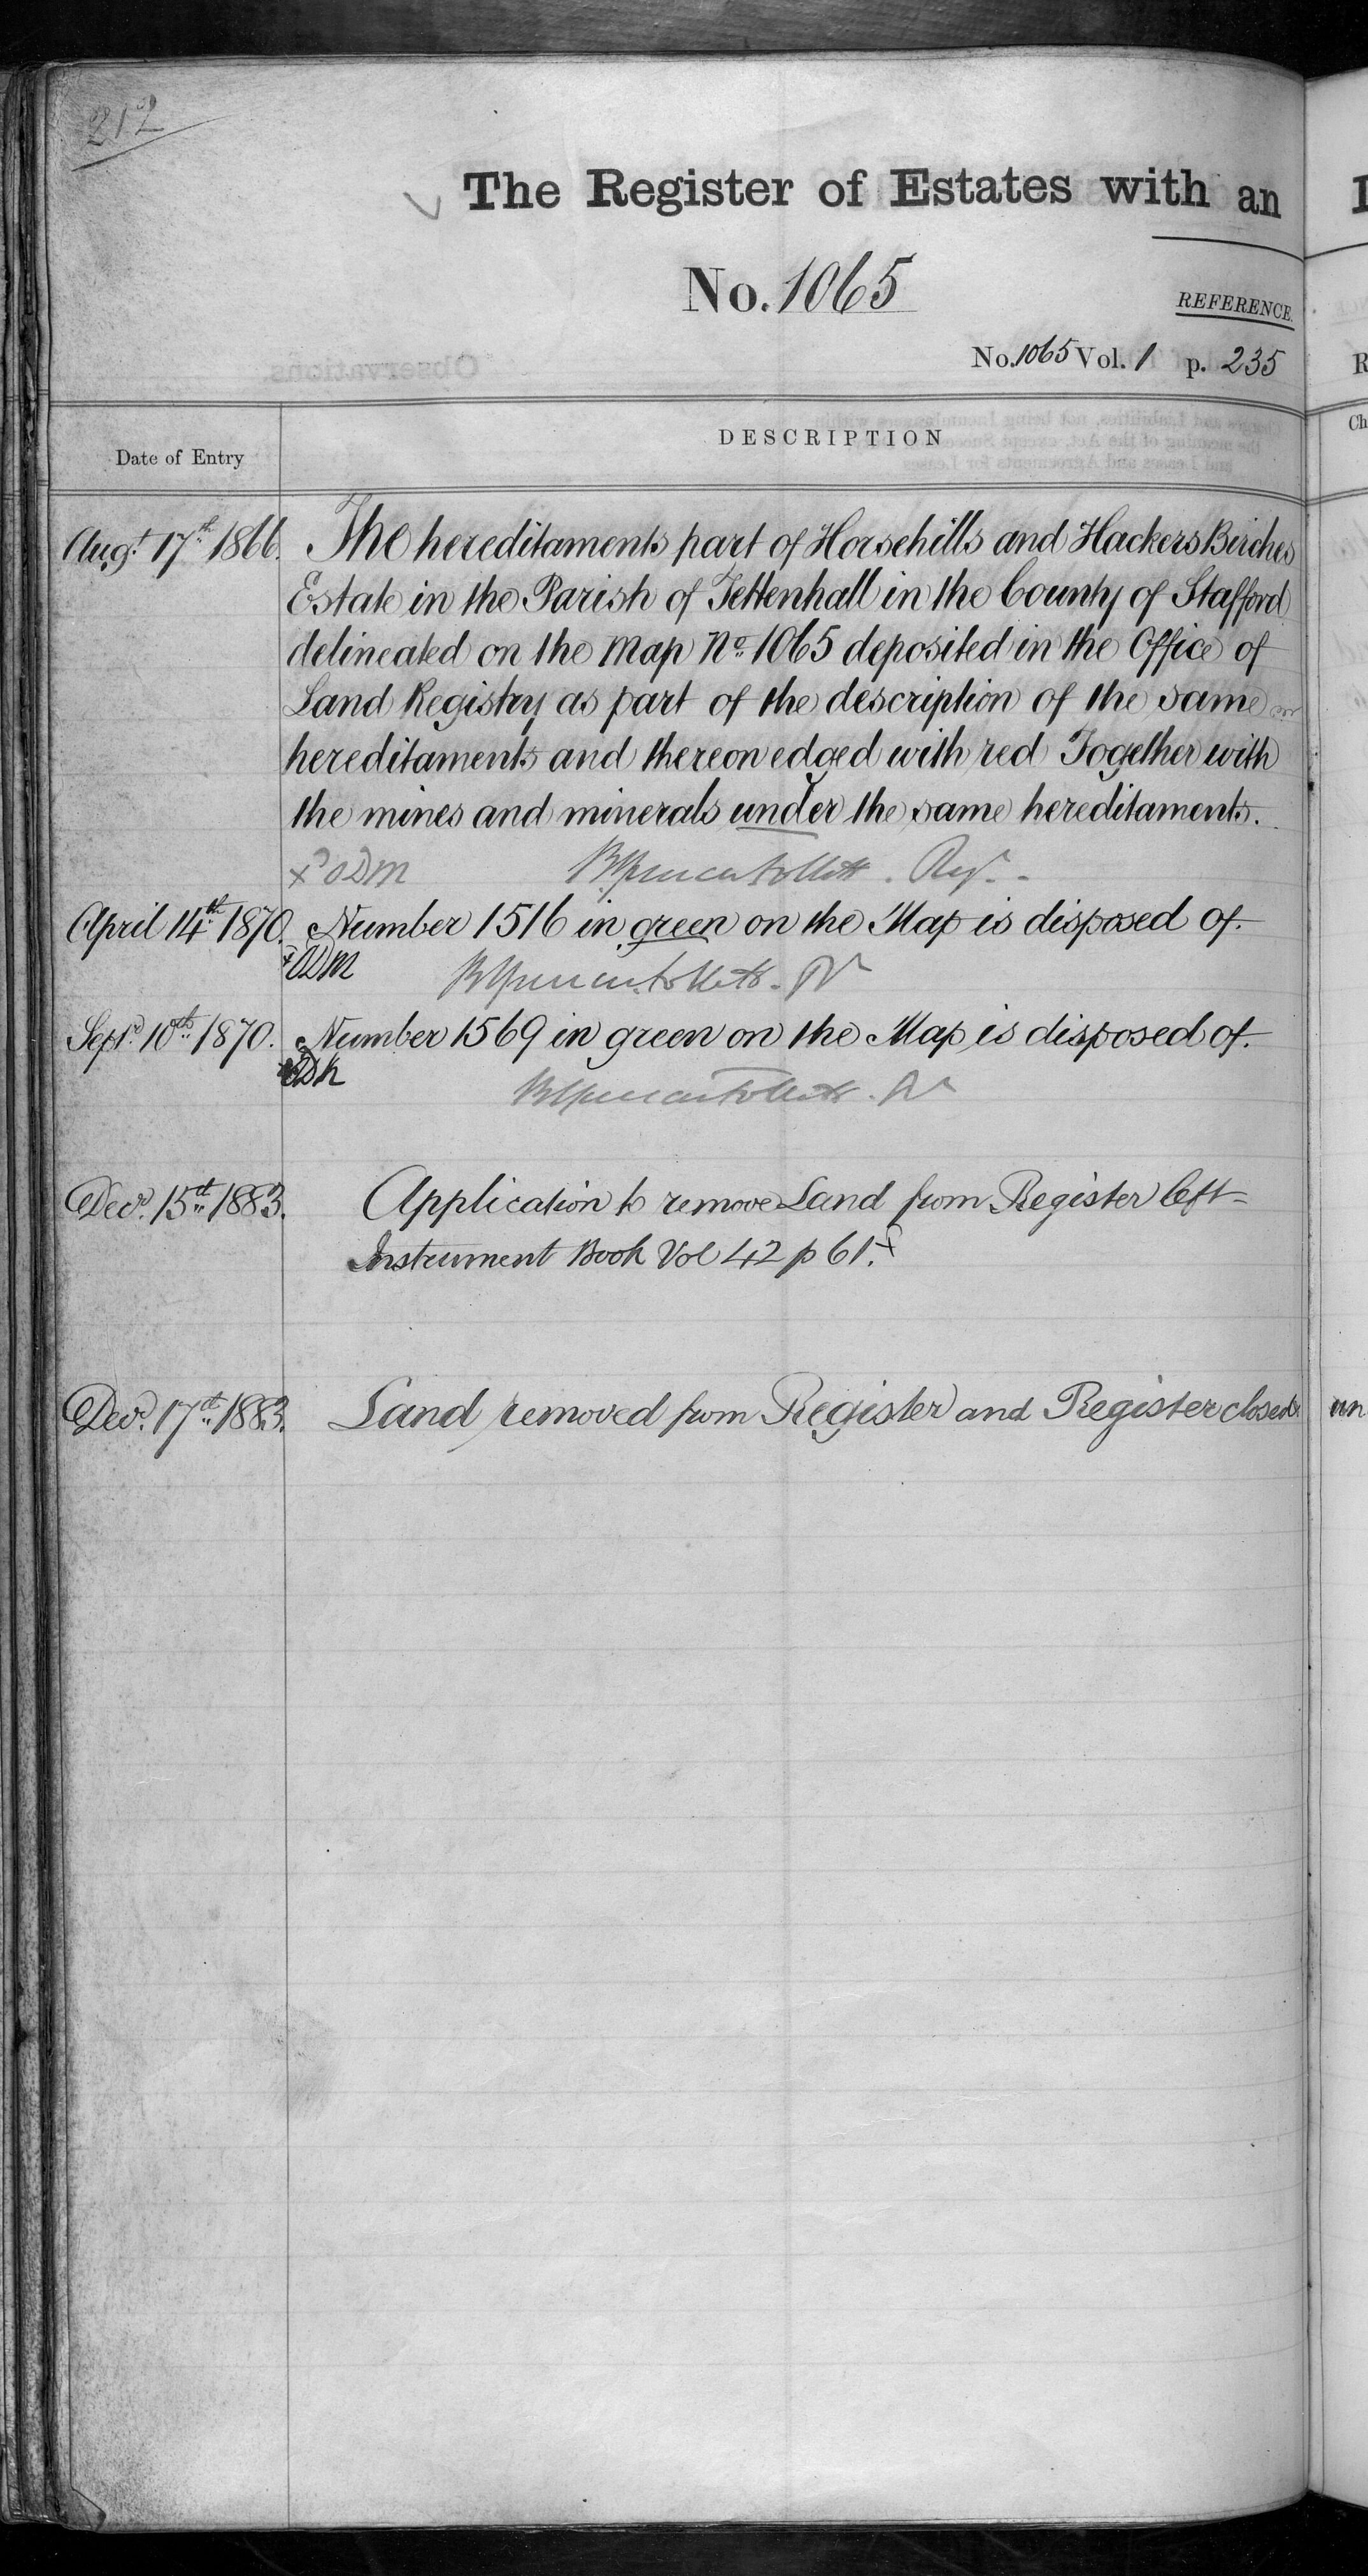 212
The Register of Estates with an
No. 1065
REFERENCE.
No. 1065 Vol. 1 p. 235
Date of Entry
DESCRIPTION
Augt. 17th 1866. The hereditaments part of Horsehills and Hackers Birches
Estate in the Parish of Tettenhall in the County of Stafford
delineated on the Map No. 1065 deposited in the Office of
Land Registry as part of the description of the same
hereditaments and thereon edged with red Together with
the mines and minerals under the same hereditaments.
April 14th 1870. Number 1516 in green on the Map is disposed of.
Septr. 10th 1870. Number 1569 in green on the Map is disposed of.
Decr. 15th 1883. Application to remove Land from Register left -
Instrument Book Vol 42 p 61. x
Decr. 17th 1883. Land removed from Register and Register closed.